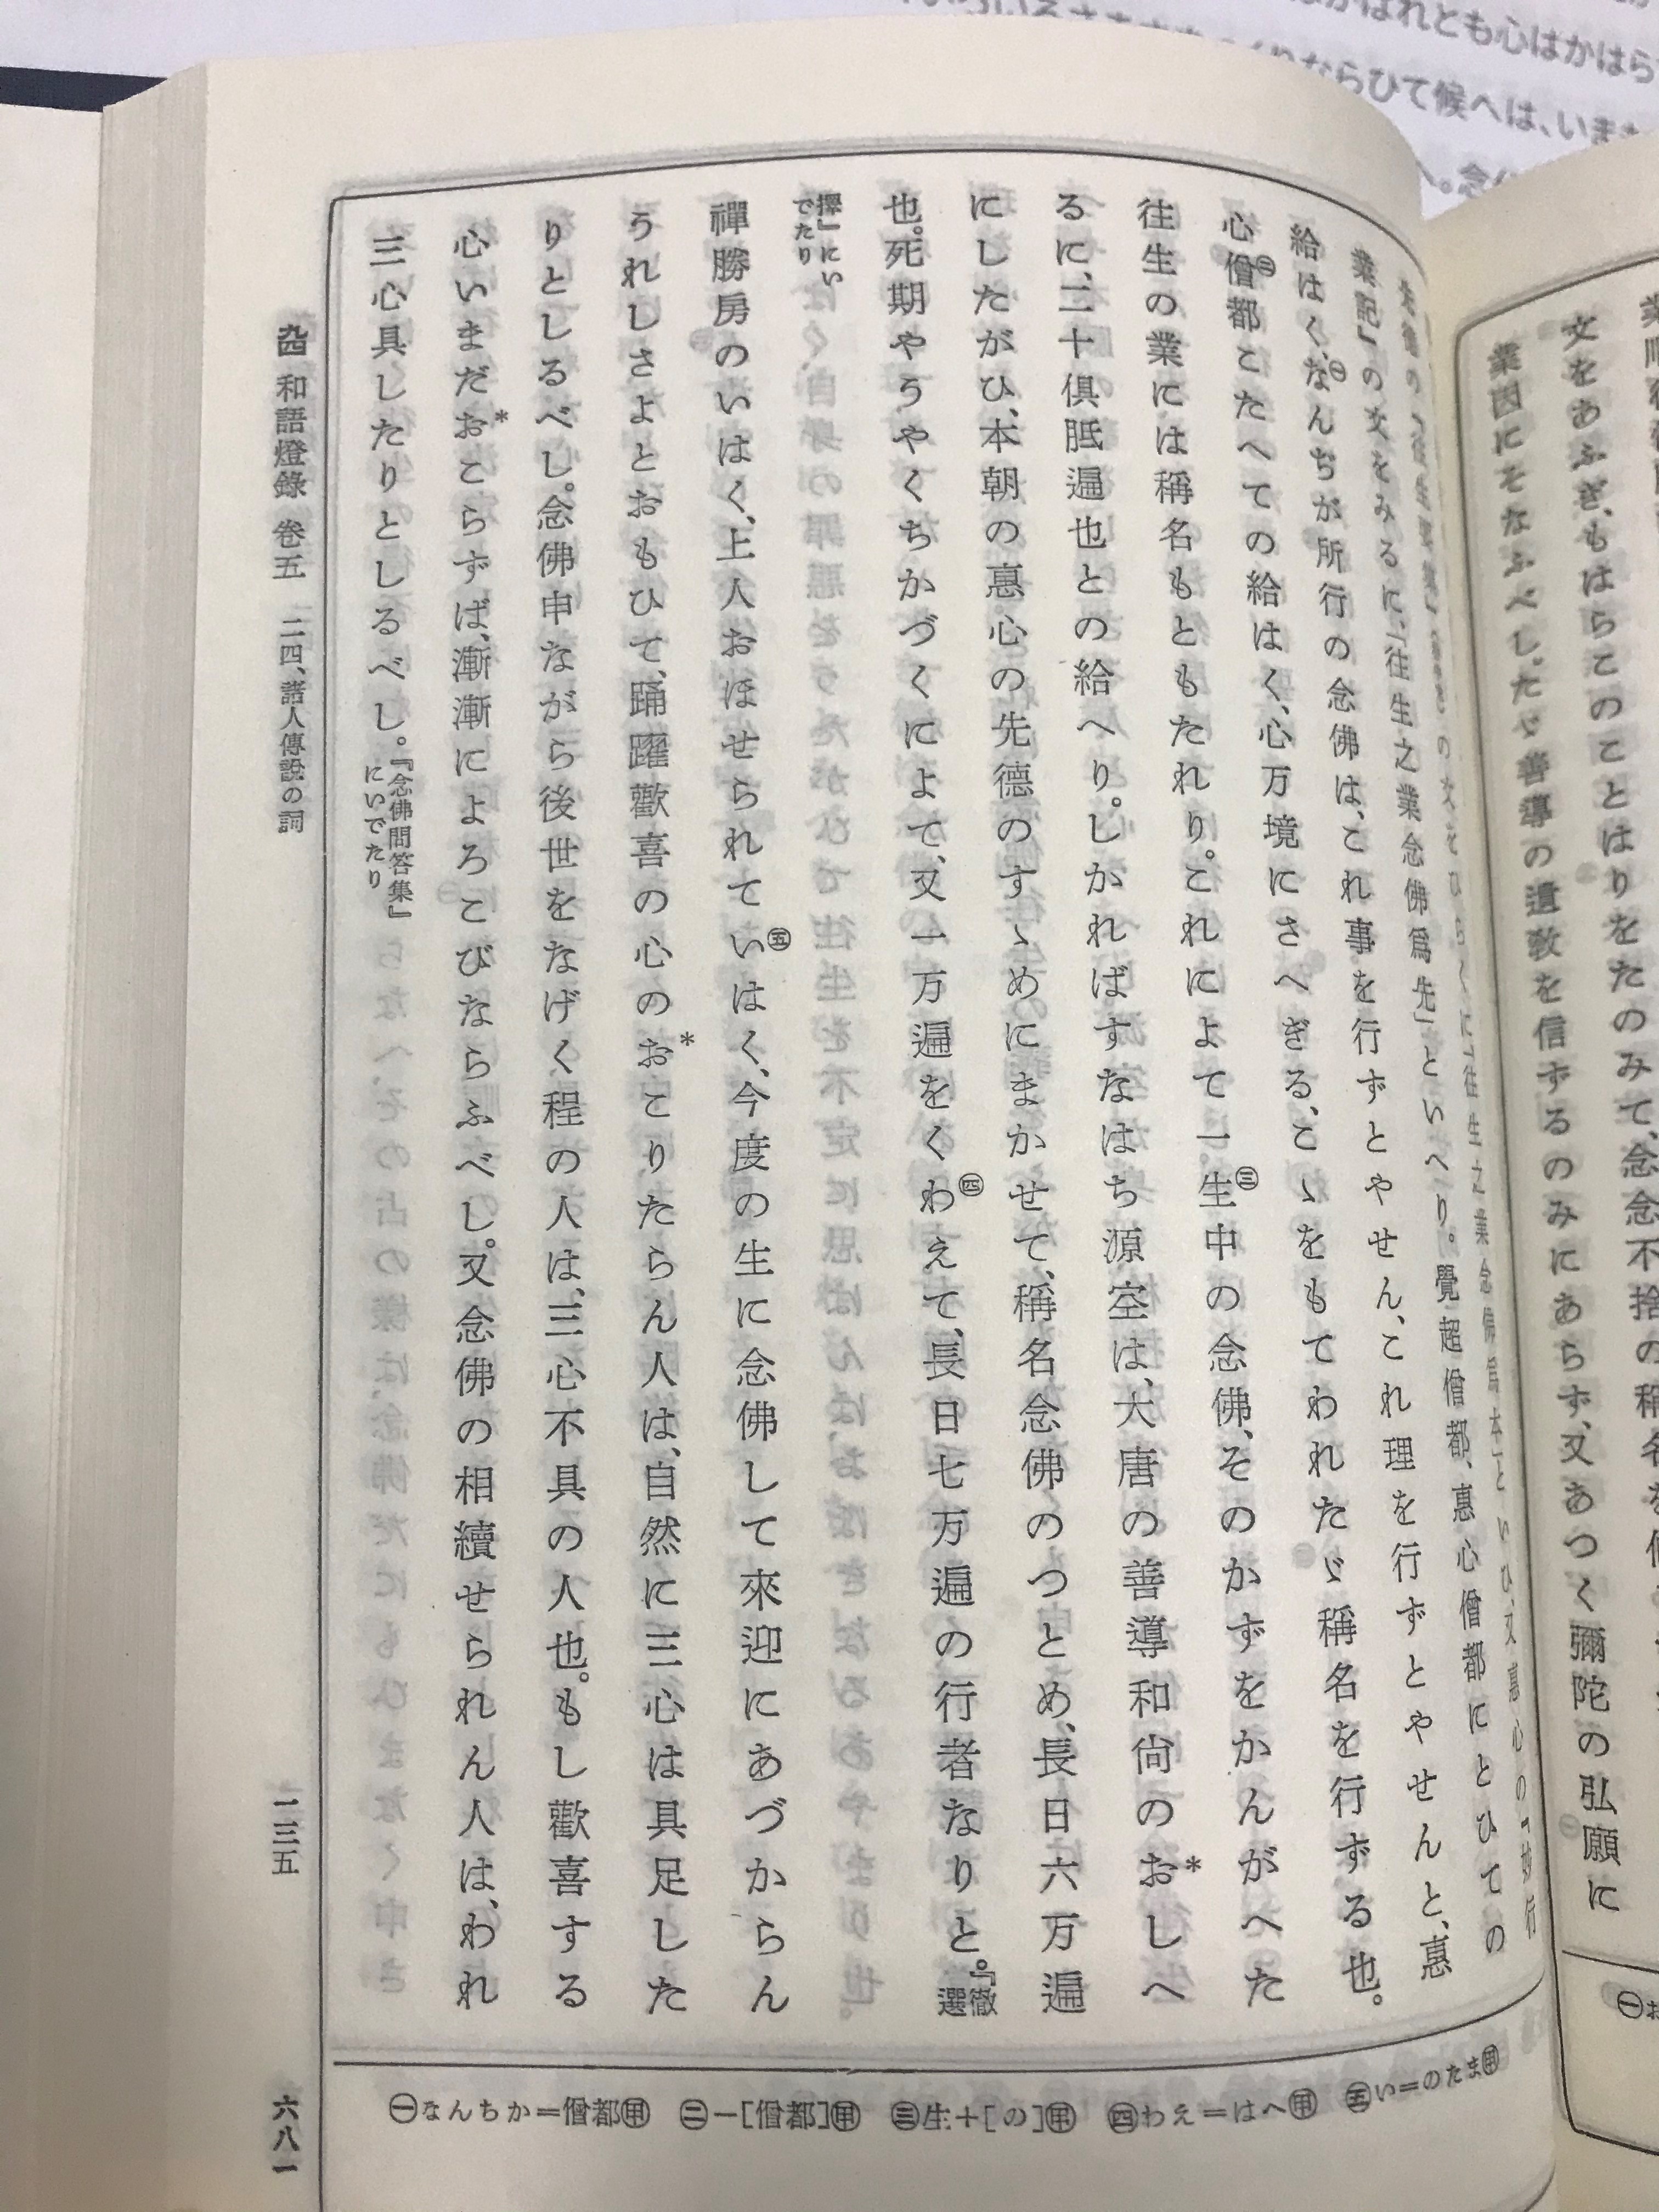 文をあふぎ、もはらこのことはりをたのみて、念念不捨の稱名を
業因にそなふべし。たゞ善導の遺敎を信ずるのみにあらず、又あつく彌陀の弘願に
先德の『往生要集』
の文をひらくに「往生之業念佛爲本」といひ、又惠心の『妙行
業記』の文をみるに、「往生之業念佛爲先」といへり。覺超僧都、惠心僧都にとひての
給はく、㊀なんぢが所行の念佛は、これ事を行ずとやせん、これ理を行ずとやせんと、惠
心㊁僧都こたへての給はく、心万境にさへぎる、こゝをもてわれたゞ稱名を行ずる也。
往生の業には稱名もともたれり。これによて一㊂生中の念佛、そのかずをかんがへた
るに、二十俱胝遍也との給へり。しかればすなはち源空は、大唐の善導和尙のお*しへ
にしたがひ、本朝の惠心の先德のすゝめにまかせて、稱名念佛のつとめ、長日六万遍
也。死期やうやくちかづくによて、又一万遍をく㊃わえて、長日七万遍の行者なりと。『徹選
擇』にいでたり
禪勝房のいはく、上人おほせられて㊄いはく、今度の生に念佛して來迎にあづからん
うれしさよとおもひて、踊躍歡喜の心のお*こりたらん人は、自然に三心は具足した
りとしるべし。念佛申ながら後世をなげく程の人は、三心不具の人也。もし歡喜する
心いまだお*こらずば、漸漸によろこびならふべし。又念佛の相續せられん人は、われ
三心具したりとしるべし。『念佛問答集』にいでたり
㊀なんちか=僧都㊥ ㊁-[僧都]㊥ ㊂生+[の]㊥ ㊃わえ=はへ㊥ ㊄い=のたま㊥
和語燈錄 卷五 二四、諸人傳說の詞
一三五
六八一